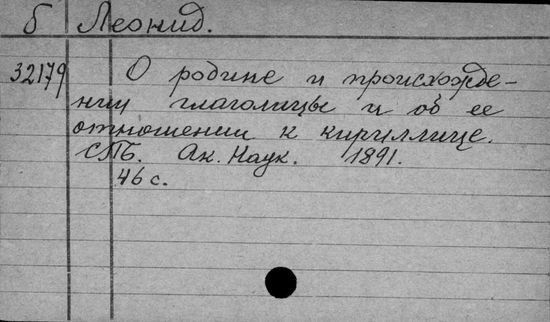 б Леонид.
32179 О родине и происхожде-
нии глаголицы и об ее
отношении к кириллице.
СПБ. Ак. Наук. 1891.
46 с.